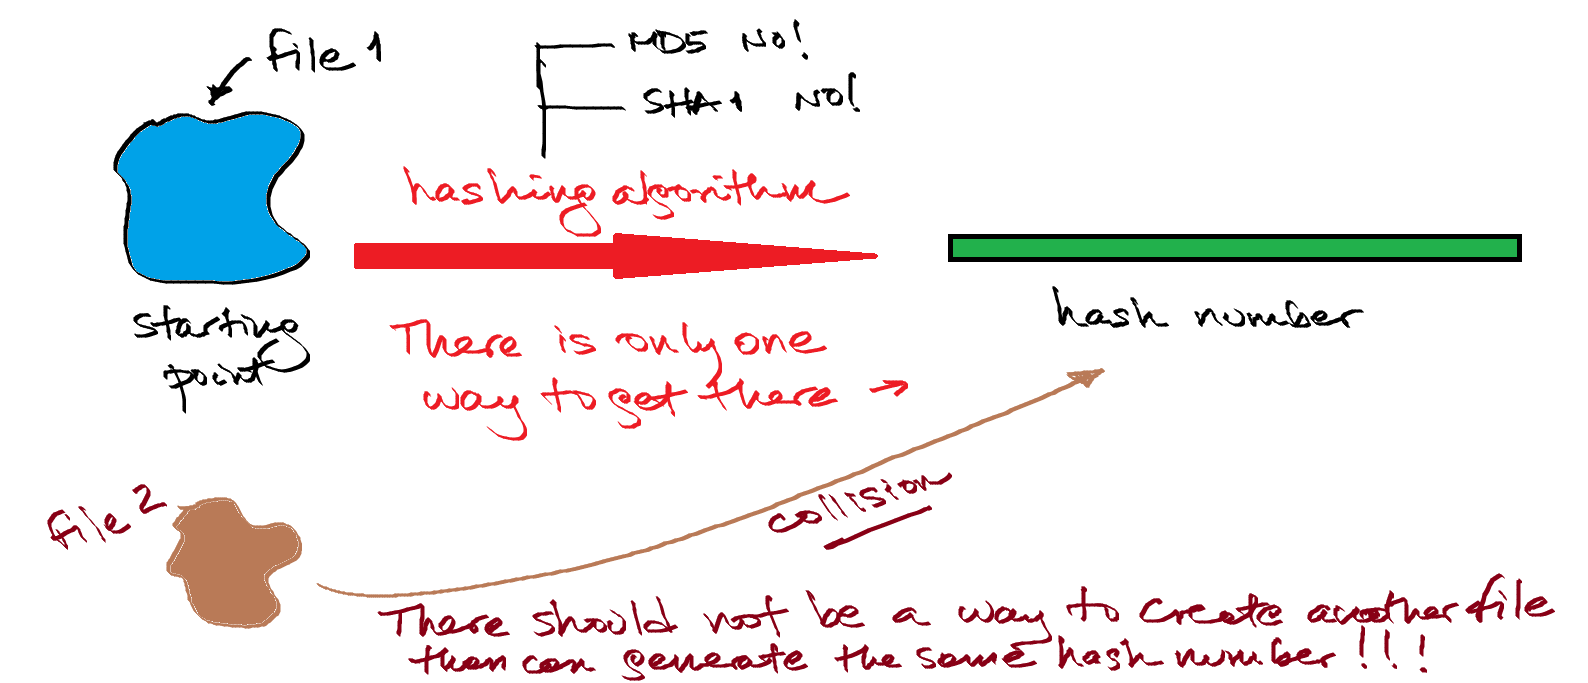 file 1
MD5 NO!
SHA1 NO!
hashing algorithm
starting
point
There is only one
way to get there →
hash number
file 2
collision
There should not be a way to create another file
than can generate the same hash number!!!